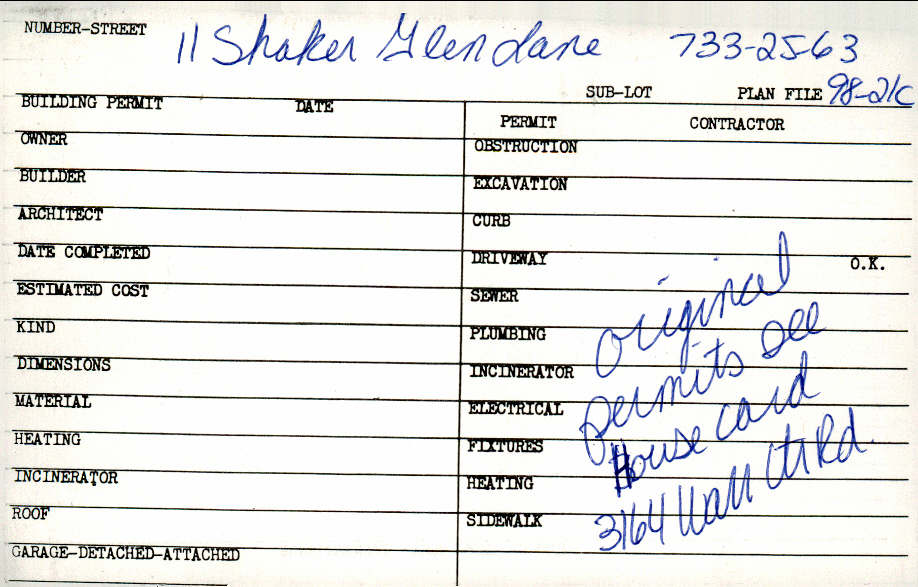 NUMBER-STREET 11 Shaker Glen Lane 733-25-63
SUB-LOT PLAN FILE 98-21C
BUILDING PERMIT DATE
PERMIT CONTRACTOR
OWNER
OBSTRUCTION
BUILDER
EXCAVATION
ARCHITECT
CURB
DATE COMPLETED
DRIVEWAY O.K.
ESTIMATED COST
SEWER
KIND
PLUMBING
DIMENSIONS
INCINERATOR
MATERIAL
ELECTRICAL
HEATING
FIXTURES
INCINERATOR
HEATING
ROOF
SIDEWALK
GARAGE-DETACHED-ATTACHED
original
permits see
House card
3164 Rd.